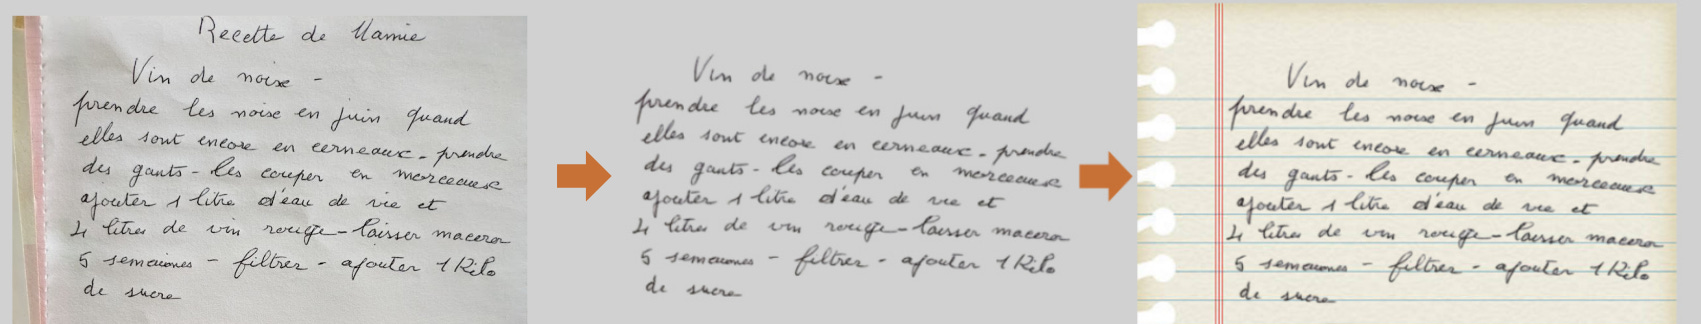 Recette de Mamie
Vin de noix -
prendre les noix en juin quand
elles sont encore en cerneaux - prendre
des gants - les couper en morceaux
ajouter 1 litre d'eau de vie et
4 litres de vin rouge - laisser macerer
5 semaines - filtrer - ajouter 1 Kilo
de sucre
Vin de noix -
prendre les noix en juin quand
elles sont encore en cerneaux - prendre
des gants - les couper en morceaux
ajouter 1 litre d'eau de vie et
4 litres de vin rouge - laisser macerer
5 semaines - filtrer - ajouter 1 Kilo
de sucre
Vin de noix -
prendre les noix en juin quand
elles sont encore en cerneaux - prendre
des gants - les couper en morceaux
ajouter 1 litre d'eau de vie et
4 litres de vin rouge - laisser macerer
5 semaines - filtrer - ajouter 1 Kilo
de sucre